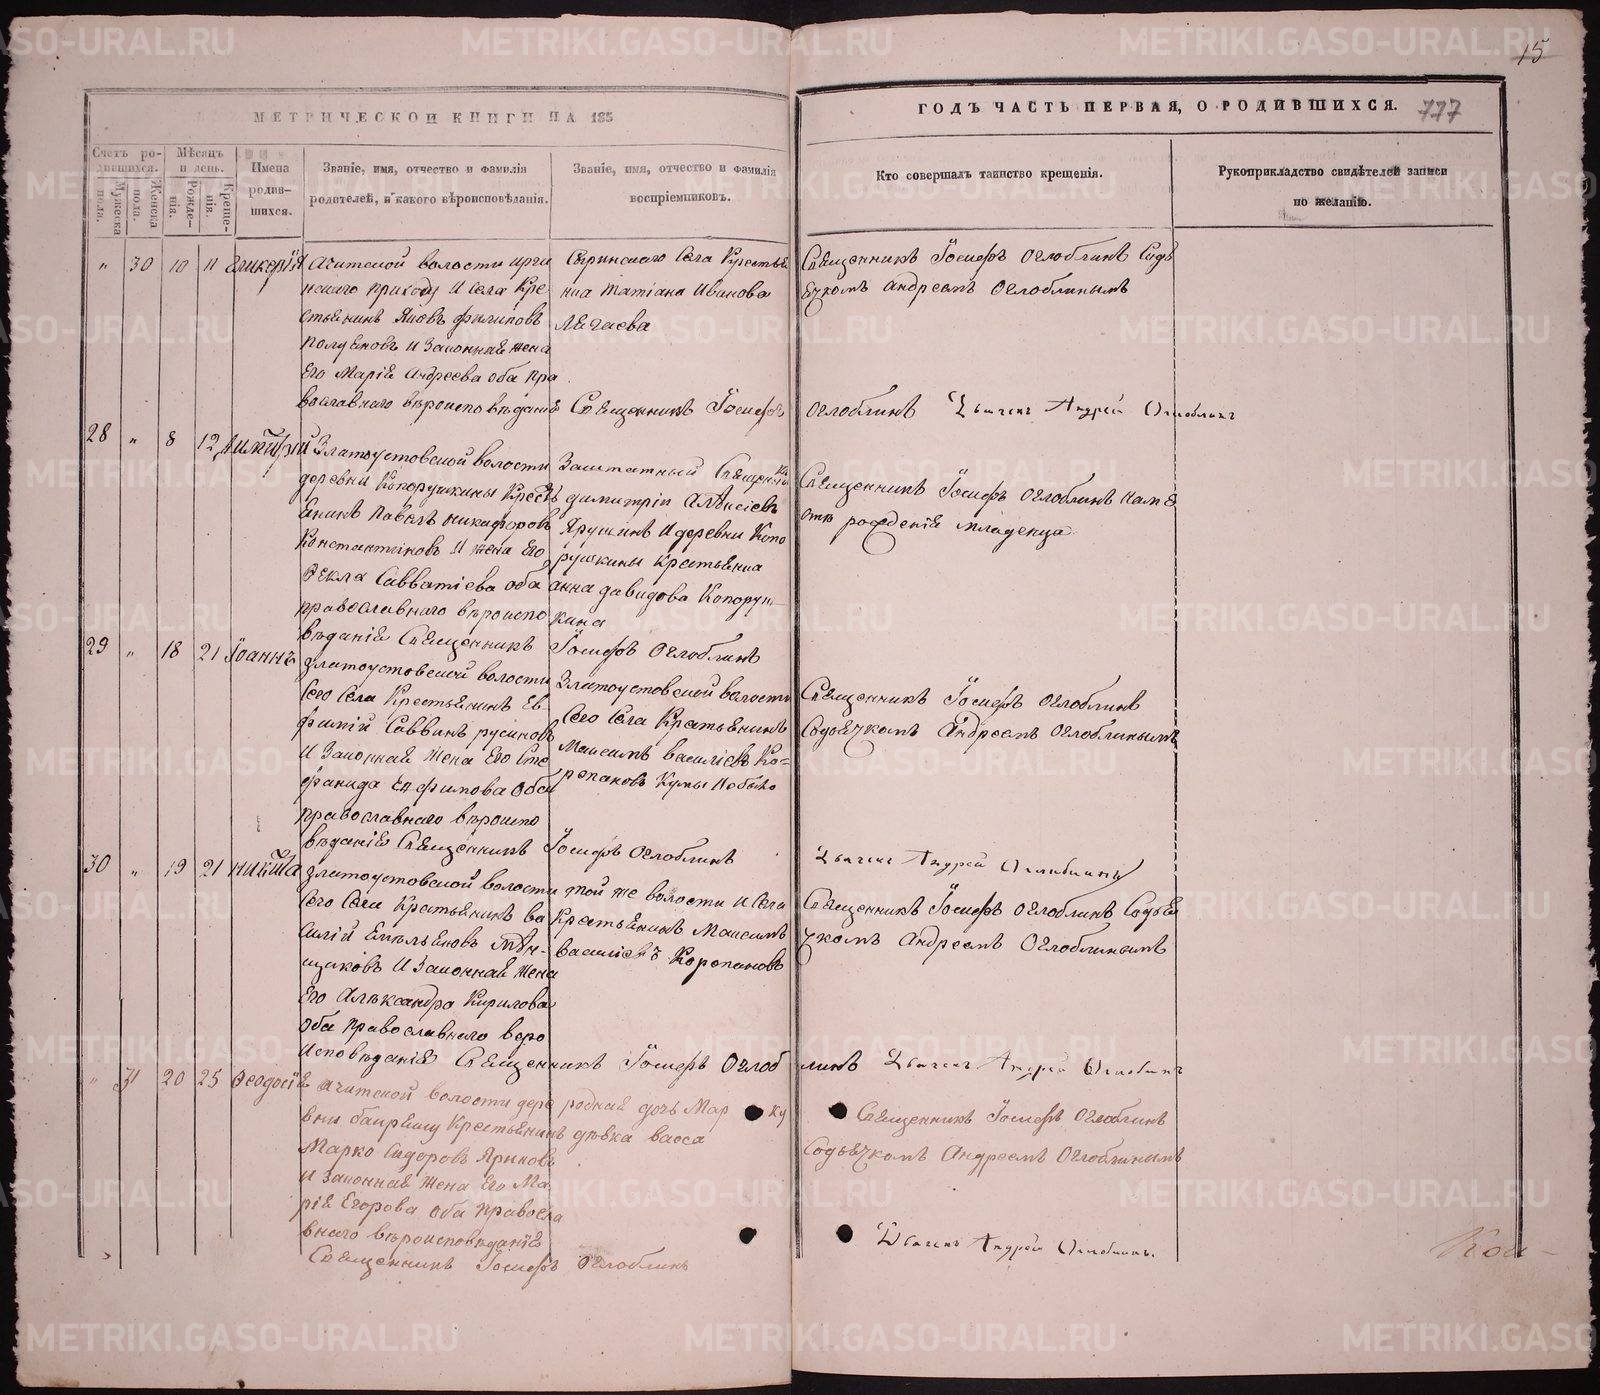 15
МЕТРИЧЕСКОЙ КНИГИ НА 185
ГОДЪ ЧАСТЬ ПЕРВАЯ, О РОДИВШИХСЯ. 777
Счетъ родившихся.
Мужеска пола.
Женска пола.
Мѣсяцъ и день.
Рожденія.
Крещенія.
Имена родившихся.
Званіе, имя, отчество и фамилія
родителей, и какого вѣроисповѣданія.
Званіе, имя, отчество и фамилія
воспріемниковъ.
Кто совершалъ таинство крещенія.
Рукоприкладство свидѣтелей записи
по желанію.
" 30 10 11 Гликерія
Ачитской волости
прихода и села Кре
стьянинъ Яковъ Филиповъ
и Законная жена
Его Марія Андреева оба пра
вославнаго вѣроисповѣданія
села Крестья
Татіана Иванова
Священникъ Іосифъ Оглоблинъ Съдь
ячкомъ Андреемъ Оглоблинымъ
Священникъ Іосифъ Оглоблинъ Дьячекъ Андрей Оглоблинъ
28 " 8 12 Димитрій
Златоустовской волости
деревни Копорушкины Кресть
янинъ Павелъ Никифоровъ
Константиновъ и жена Его
Ѳекла Савватіева оба
православнаго вѣроиспо
вѣданія Священникъ Іосифъ Оглоблинъ
Заштатный Священни
димитрій
и деревни Копо
рушкины крестьянка
анна давидова Копоруш
кина
Священникъ Іосифъ Оглоблинъ
рожденія младенца
29 " 18 21 Іоаннъ
Златоустовской волости
Сего Села Крестьянинъ Ев
фимій Саввинъ русиновъ
и Законная жена Его Сте
фанида Ефимова оба
православнаго вѣроиспо
вѣданія Священникъ Іосифъ Оглоблинъ
Златоустовской волости
Сего Села Крестьянинъ
Максимъ василіевъ Ко-
репановъ Кумы Небыло
Священникъ Іосифъ Оглоблинъ
Содьячкомъ Андреемъ Оглоблинымъ
Дьячекъ Андрей Оглоблинъ
30 " 19 21 Никита
Златоустовской волости
Сего Села Крестьянинъ ва
силій Емельяновъ
и Законная жена
Его Александра Кирилова
оба православнаго веро
исповѣданія Священникъ Іосифъ Оглоблинъ Дьячекъ Андрей Оглоблинъ
той же волости и села
Крестьянинъ Максимъ
василіевъ Корепановъ
Священникъ Іосифъ Оглоблинъ Содья
чкомъ Андреемъ Оглоблинымъ
" 31 20 25 Ѳеодосія
Ачитской волости дере
вни Крестьянинъ
Марко Сидоровъ
и Законная жена Его Ма
рія Егорова оба правосла
внаго вѣроисповѣданія
Священникъ Іосифъ Оглоблинъ
родная дочь Мар ку
дѣвка васса
Священникъ Іосифъ Оглоблинъ
Содьячкомъ Андреемъ Оглоблинымъ
Дьячекъ Андрей Оглоблинъ.
METRIKI.GASO-URAL.RU